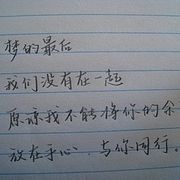 梦的最后
我们没有在一起
原谅我不能将你的余
放在手心 、与你同行。